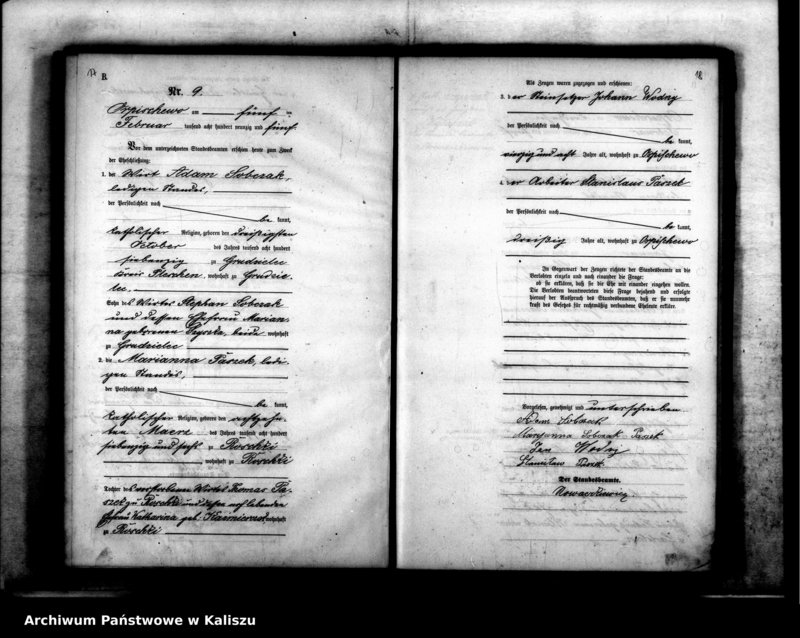 B.
Nr. 9.
am fünf
Februar tausend acht hundert neunzig und fünf.
Vor dem unterzeichneten Standesbeamten erschien heute zum Zweck
der Eheschließung:
1. der Wirt Adam Sobczak,
ledigen Standes,
der Persönlichkeit nach
be kannt,
katholischer Religion, geboren den dreißigsten
October des Jahres tausend acht hundert
siebenzig zu Grudzielec
Kreis Pleschen, wohnhaft zu Grudzie-
lec.
Sohn des Wirtes Stephan Sobczak
und dessen Ehefrau Marian-
na geborenen beide wohnhaft
zu Grudzielec
2. die Marianna Paszek, ledi-
gen Standes,
der Persönlichkeit nach
be kannt,
katholischer Religion, geboren den
ten Maerz des Jahres tausend acht hundert
siebenzig und sechs zu
wohnhaft zu
Tochter des verstorbenen Wirtes Thomas Pa-
szek zu und dessen noch lebenden
Ehefrau Katharina geb. wohnhaft
zu
18
Als Zeugen waren zugezogen und erschienen:
3. der Steinsetzer Johann Wodny
der Persönlichkeit nach
be kannt,
vierzig und acht Jahre alt, wohnhaft zu
4. der Arbeiter Stanislaus Paszek
der Persönlichkeit nach
be kannt,
dreißig Jahre alt, wohnhaft zu
In Gegenwart der Zeugen richtete der Standesbeamte an die
Verlobten einzeln und nach einander die Frage:
ob sie erklären, daß sie die Ehe mit einander eingehen wollen.
Die Verlobten beantworteten diese Frage bejahend und erfolgte
hierauf der Ausspruch des Standesbeamten, daß er sie nunmehr
kraft des Gesetzes für rechtmäßig verbundene Eheleute erkläre.
Vorgelesen, genehmigt und unterschrieben
Adam Sobczak
Maryanna Sobczak Paszek
Jan Wodny
Stanisław Paszek
Der Standesbeamte.
Nowackiewicz
Archiwum Państwowe w Kaliszu